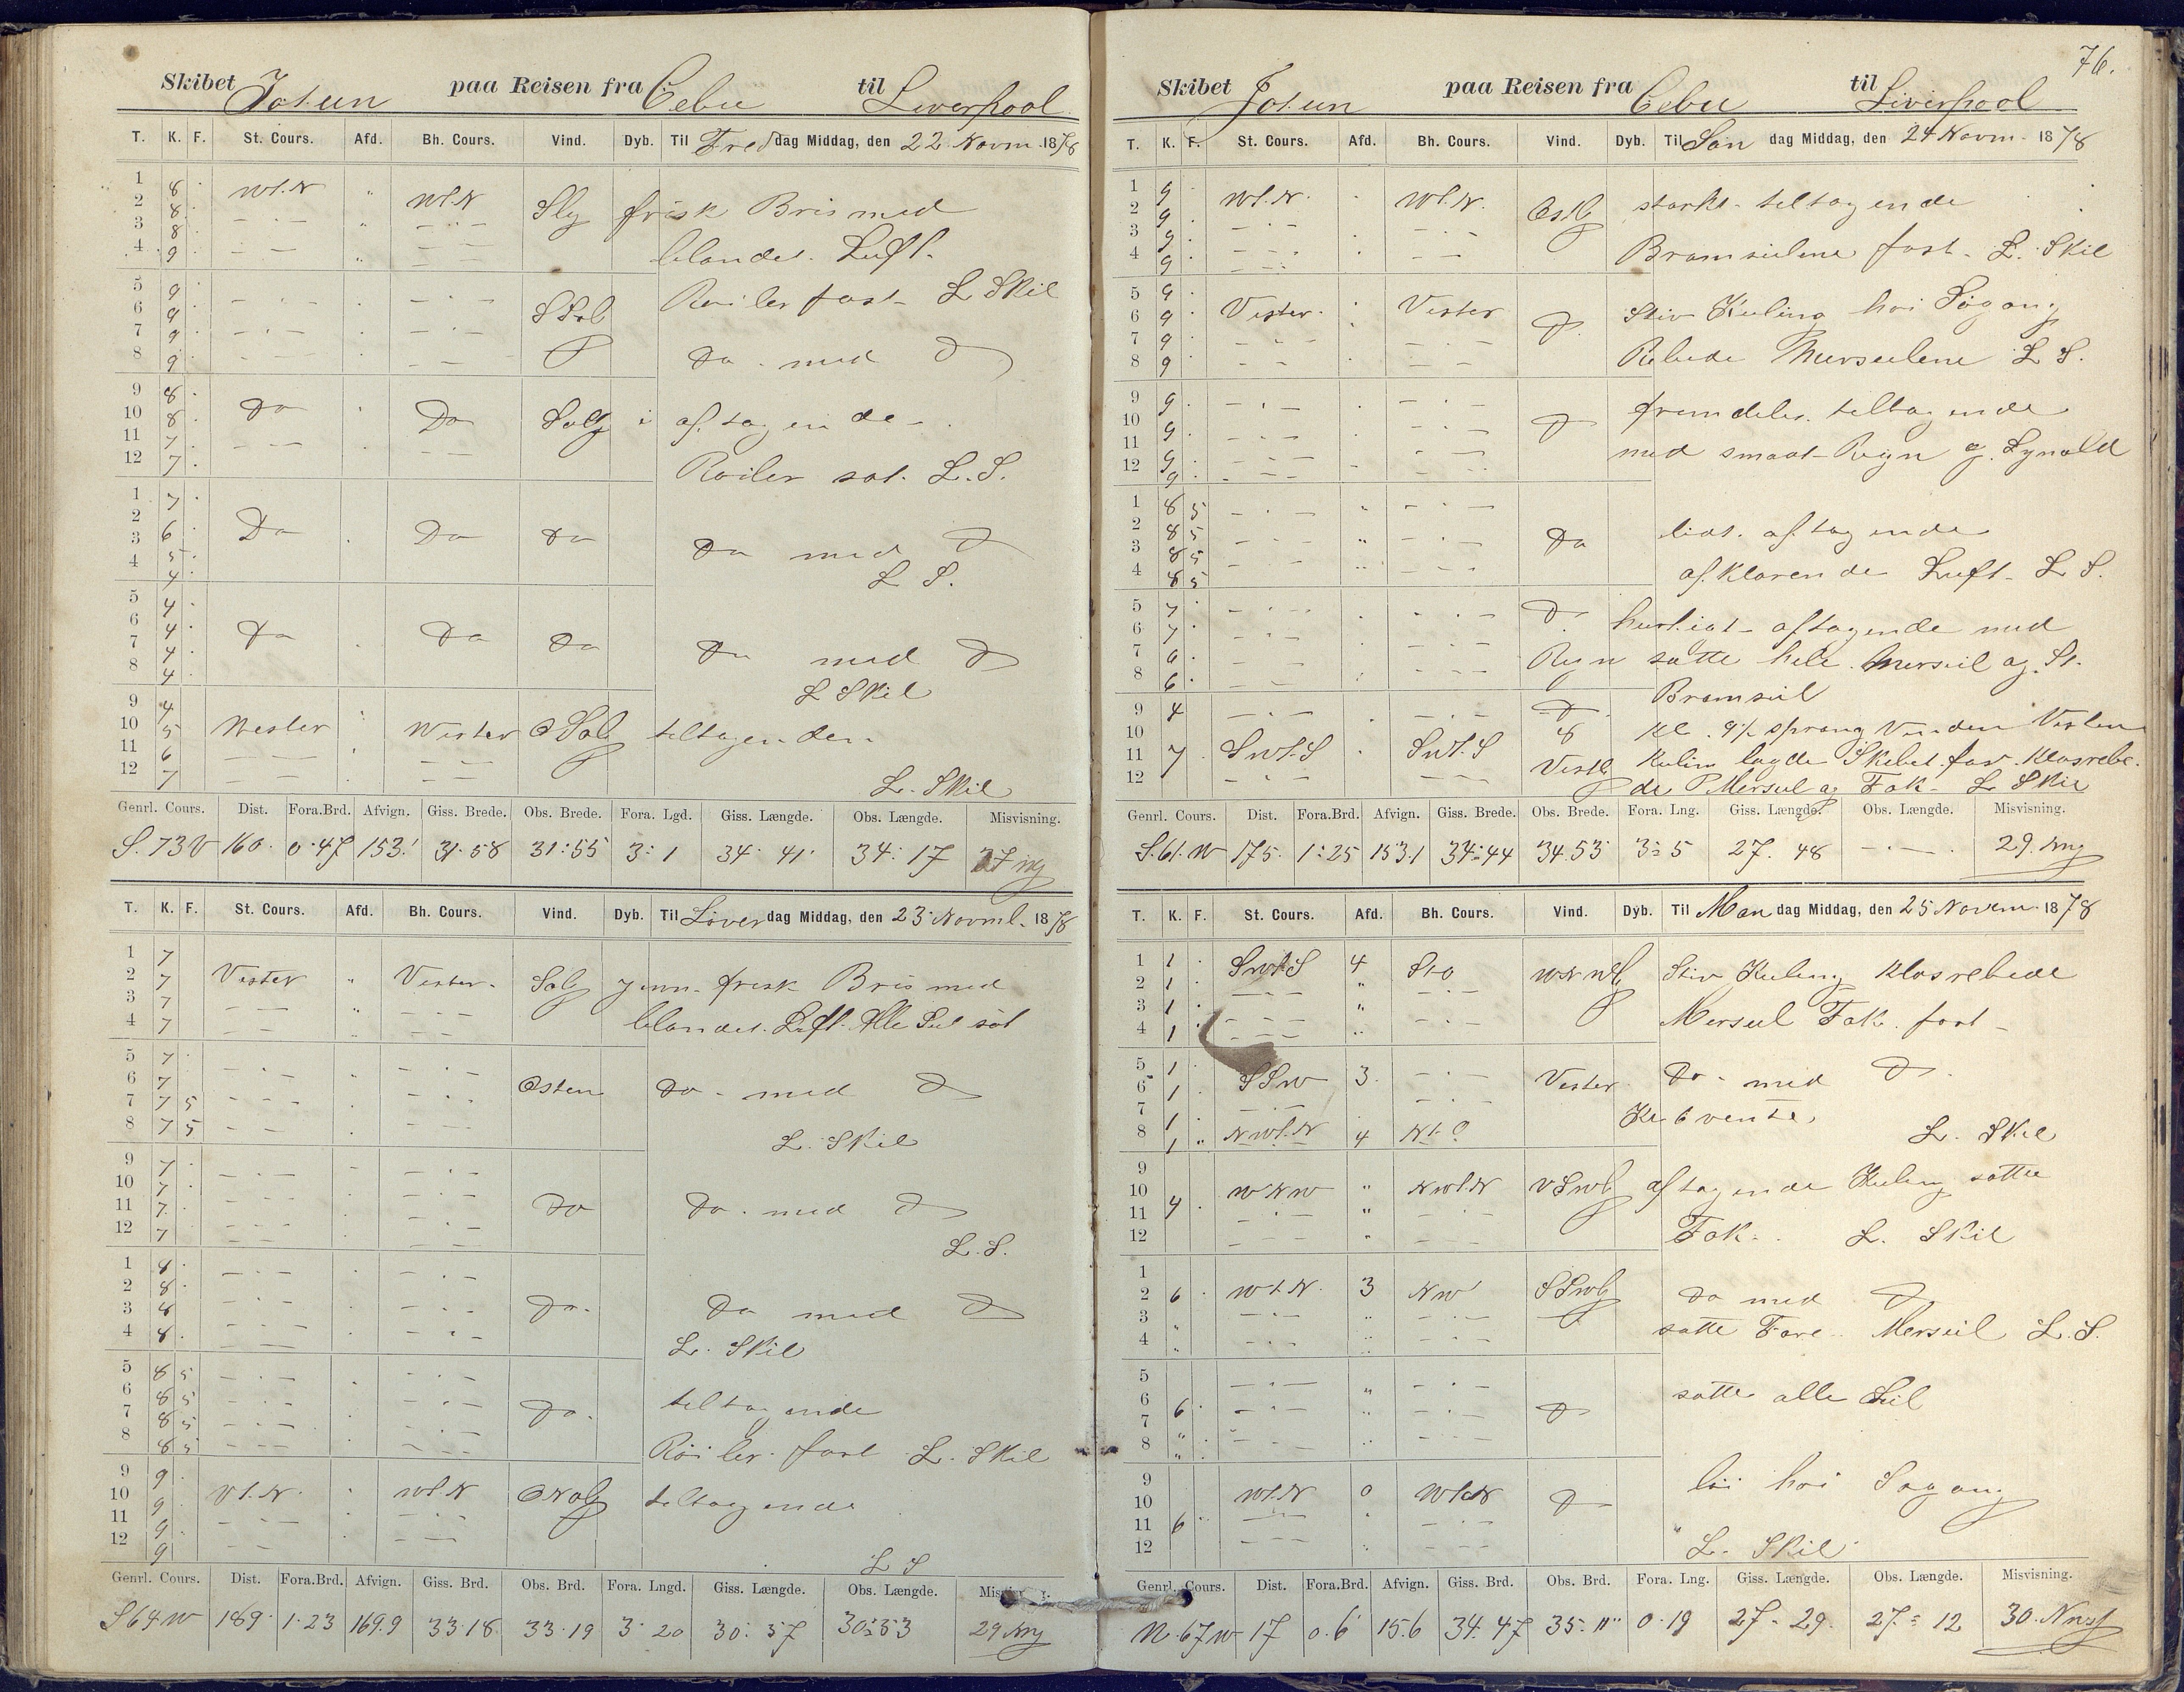 Skibet Jotun paa Reisen fra Cebu til Liverpool
T. K. F. St. Cours. Afd. Bh. Cours. Vind. Dyb. Til Fredag Middag, den 22 Novm. 1878
1 8 Wt.N Wt.N Sly frisk Bris med
2 8
3 8 blandet Luft.
4 9
5 9 Roiler fast L Skil
6 9
7 9 Do. med Do
8 9
9 8 Do Do aftagende
10 8
11 7
12 7 Roiler sat. L.S.
1 7
2
3 6 Do Do Do Do med Do
4 5 4 L S.
5 4
6 4 Do Do Do
7 4 Do med Do
8 4 L Skil
9 4
10 5 Wester Wester tiltagende
11 6
12 7 L. Skil
Genrl. Cours. Dist. Fora.Brd. Afvign. Giss. Brede. Obs. Brede. Fora. Lgd. Giss. Længde. Obs. Længde. Misvisning.
S. 73 V 160. 0.47 153.1 31.08 31:55 3:1 34: 41' 34: 17
T. K. F. St. Cours. Afd. Bh. Cours. Vind. Dyb. Til Löverdag Middag, den 23 Novmb. 1878
1 7
2 7 Vester Vester frisk Bris med
3 7
4 7 blandet Luft. Alle Seil sat
5 7
6 7 Osten Do. med Do
7 7 5
8 7 5 L. Skil
9 7
10 7
11 7 Do Do. med Do
12 7 L.S.
1 8
2 8
3 8 Do. Do med Do
4 8 L. Skil
5 8 5
6 8 5 tiltagende
7 8 5 Do.
8 8 5 Röiler fast L. Skil
9 9
10 9 Vt.N. Wt.N tiltagende
11 9
12 9 L S
Genrl. Cours. Dist. Fora.Brd. Afvign. Giss. Brd. Obs. Brd. Fora. Lngd. Giss. Længde. Obs. Længde.
S 64 W 189. 1.23 169.9 33.18. 33.19 3: 20 30: 57 30:53 29
76.
Skibet Jotun paa Reisen fra Cebu til Liverpool
T. K. F. St. Cours. Afd. Bh. Cours. Vind. Dyb. Til Søndag Middag, den 24 Novm. 1878
1 9 Wt.N. Wt.N. Ostl. starkt tiltagende
2 9
3 9
4 9 Bramseilene fast. L. Skil
5 9
6 9 Vester. Vester Do. Stiv Kuling hoi Sögang
7 9
8 9 Rebede Merseilene L S.
9 9 fremdeles tiltagende
10 9 Do
11 9 med smaat Regn og Lynild
12 9
1 8 5
2 8 5 Do lidt aftagende
3 8 5
4 8 5 afklarende Luft. L S.
5 7 Do hurtigt aftagende med
6 7
7 6 Regn satte hele Merseil og St.
8 6 Bramseil
9 4 Do.
10 Kl. 9½ sprang Vinden Vesten
11 7 SWt.S SWt.S Vestl. Kulin lagde Skibet for klosrebe-
12 de Merseil og Fok. L Skil
Genrl. Cours. Dist. Fora.Brd. Afvign. Giss. Brede. Obs. Brede. Fora. Lng. Giss. Længde. Obs. Længde. Misvisning.
S.61.W 175. 1:25 153.1 34:44 34.53 3:5 27. 48 29.
T. K. F. St. Cours. Afd. Bh. Cours. Vind. Dyb. Til Mandag Middag, den 25 Novem. 1878
1 1 SWtS 4 StO WNWl. Stiv Kuling klosrebede
2 1
3 1
4 1 Merseil Fok. fast
5 1
6 1 SSW 3. Vester Do. med Do.
7 1 Kl 6 vente.
8 1 NWt.N 4 Nt.O L. Skil
9
10 4 WNW NWt.N VSWl. aftagende Kuling satte
11
12 Fok. L. Skil
1
2 6 Wt.N. 3 NW SSWl. Do med Do
3
4 satte Fore Merseil L.S.
5
6 6 satte alle Seil
7 Do
8
9
10 Wt.N 0 Wt.N Do hoi Sögang
11 6
12 L. Skil
Genrl. Cours. Dist. Fora.Brd. Afvign. Giss. Brd. Obs. Brd. Fora. Lng. Giss. Længde. Obs. Længde. Misvisning.
N.67W 17 0.6 15.6 34.47 35.11 0.19 27. 29. 27. 12 30.